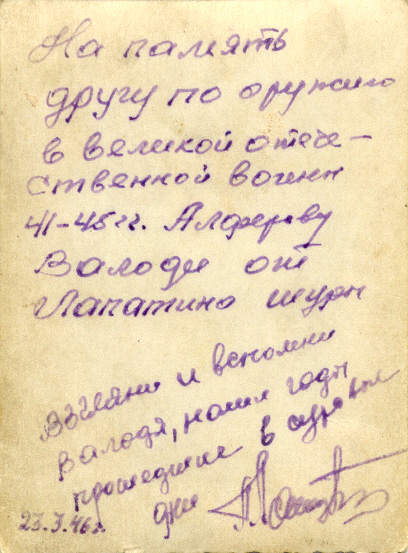 На память
другу по оружию
в великой отече-
ственной воины
41-45 гг. Алферову
Валоди от
Лапатино шуры
Взгляни и вспомни
Валодя, наши годы
прошедшие в суровые
дни
23.3.46 г.